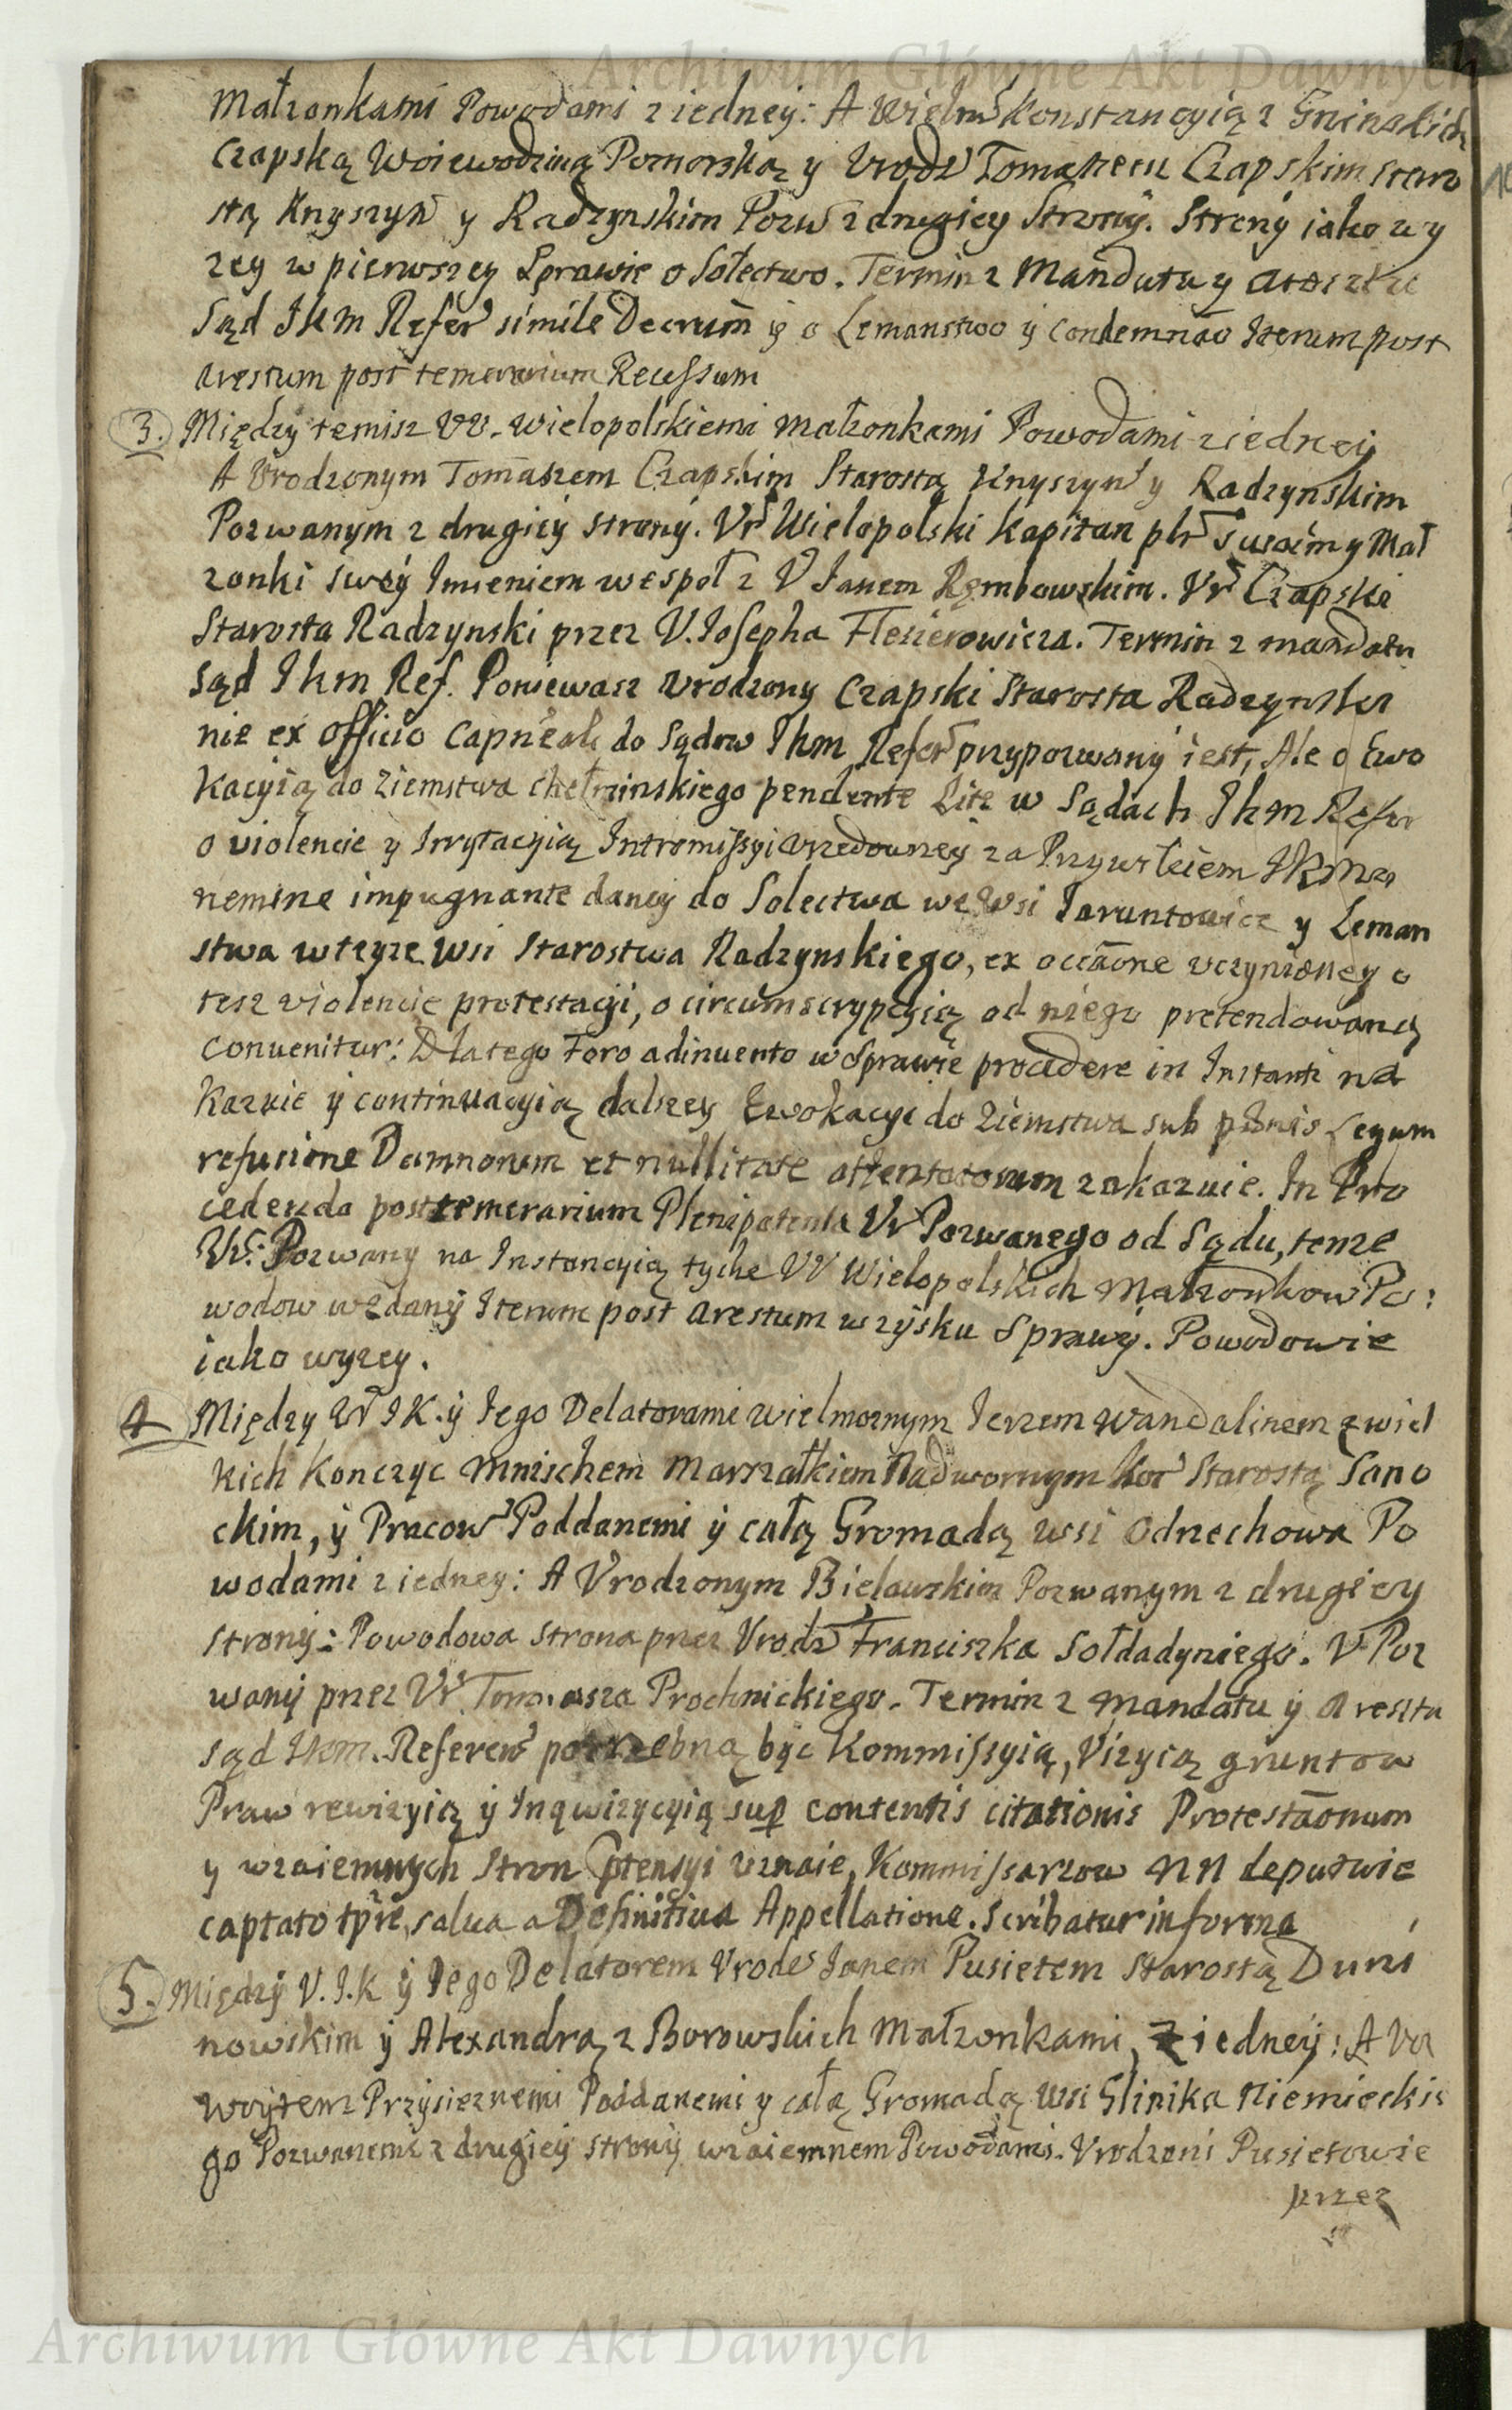 Archiwum Główne Akt Dawnych
Małzonkami Powodami z iedney: A Wielm Konstancyią z Gninskich
Czapską Woiewodziną Pomorską y Urodz Tomaszem Czapskim staro
stą Knyszyń y Radzynskim Pozw z drugiey Strony. Strony iako wy
zey w pierwszey Sprawie o Sołectwo. Termin z Mandatu y aresztu
Sąd JKM Refer simile Decrum iz o Lemanstwo ÿ condemnao Iterum post
arestum post temerarium Recessum
3. Między temisz UU. Wielopolskiemi małzonkami Powodami z iedney
A Urodzonym Tomaszem Czapskim Starostą Knyszyn y Radzynskim
Pozwanym z drugiey strony. Ur Wielopolski Kapitan plr swoim y Mał
zonki swey Imieniem wespoł z U Janem Rembowskim. Ur Czapski
Starosta Radzynski przez U. Josepha Flesierowicza. Termin z mandatu
Sąd Jkm Ref. Poniewasz urodzony Czapski Starosta Radzynski
nie ex officio Capneali do Sądow Jkm Refer przypozwany iest, Ale o Ewo
kacyią do Ziemstwa chełminskiego pendente Lite w Sądach Jkm Refer
o violencie y Irrytacyią Intromissyi Urzedowney za Przywileiem JKMci
nemine impugnante daney do Solectwa we Wsi Jaruntowice y Leman
stwa w teyze Wsi Starostwa Radzynskiego, ex occāone uczynioney o
tesz violencie protestacyi, o circumscrypcyią od niego pretendowaną
convenitur: Dlatego Foro adinvento w Sprawie procedere in Instanti na
kazuie ÿ continuacyią dalszey Ewokacyi do Ziemstwa sub pænis Legum
refusione Damnorum et nullitate attentatorum zakazuie. In Pro
cedendo post temerarium Plenipotenta Ur Pozwanego od Sądu, tenze
Ur: Pozwany na Instancyią tychze UU Wielopolskich Małzonkow Po:
wodow wzdany Iterum post arestum w zysku Sprawy. Powodowie
iako wyzey.
4 Między Ur IK. ÿ Jego Delatorami wielmoznym Jerzem Wandalinem z wiel
kich Konczyc Mnischem Marszałkiem Nadwornym Kor Starostą Sano
ckim, ÿ Pracow Poddanemi ÿ całą Gromadą wsi Odrzechowa Po
wodami z iedney: A Urodzonym Bielawskim Pozwanym z drugiey
strony: Powodowa strona przez Urodz Franciszka Sołdadyniego. U Poz
wany przez Ur Tomasza Prochnickiego. Termin z mandatu ÿ Aresztu
Sąd Jkm. Referen potrzebną byc Kommissyią, Vizycią gruntow
Praw rewizyią ÿ Inqwizycyią sup contentis citationis Protestāonum
y wzaiemnych Stron ptensyi uznaie, Kommissarzow NN deputuie
captato tpre, salva a Definitiva Appellatione. Scribatur in forma
5. Między U. I.K ÿ Jego Delatorem Urodz Janem Pusietem Starostą Duni
nowskim ÿ Alexandrą z Borowskich Małzonkami, z iedney: A
Woytem Przysieznemi Poddanemi y całą Gromadą Wsi Glinika Niemieckie
go Pozwanemi z drugiey strony wzaiemnem Powodami. Urodzeni Pusietowie
przez
Archiwum Główne Akt Dawnych